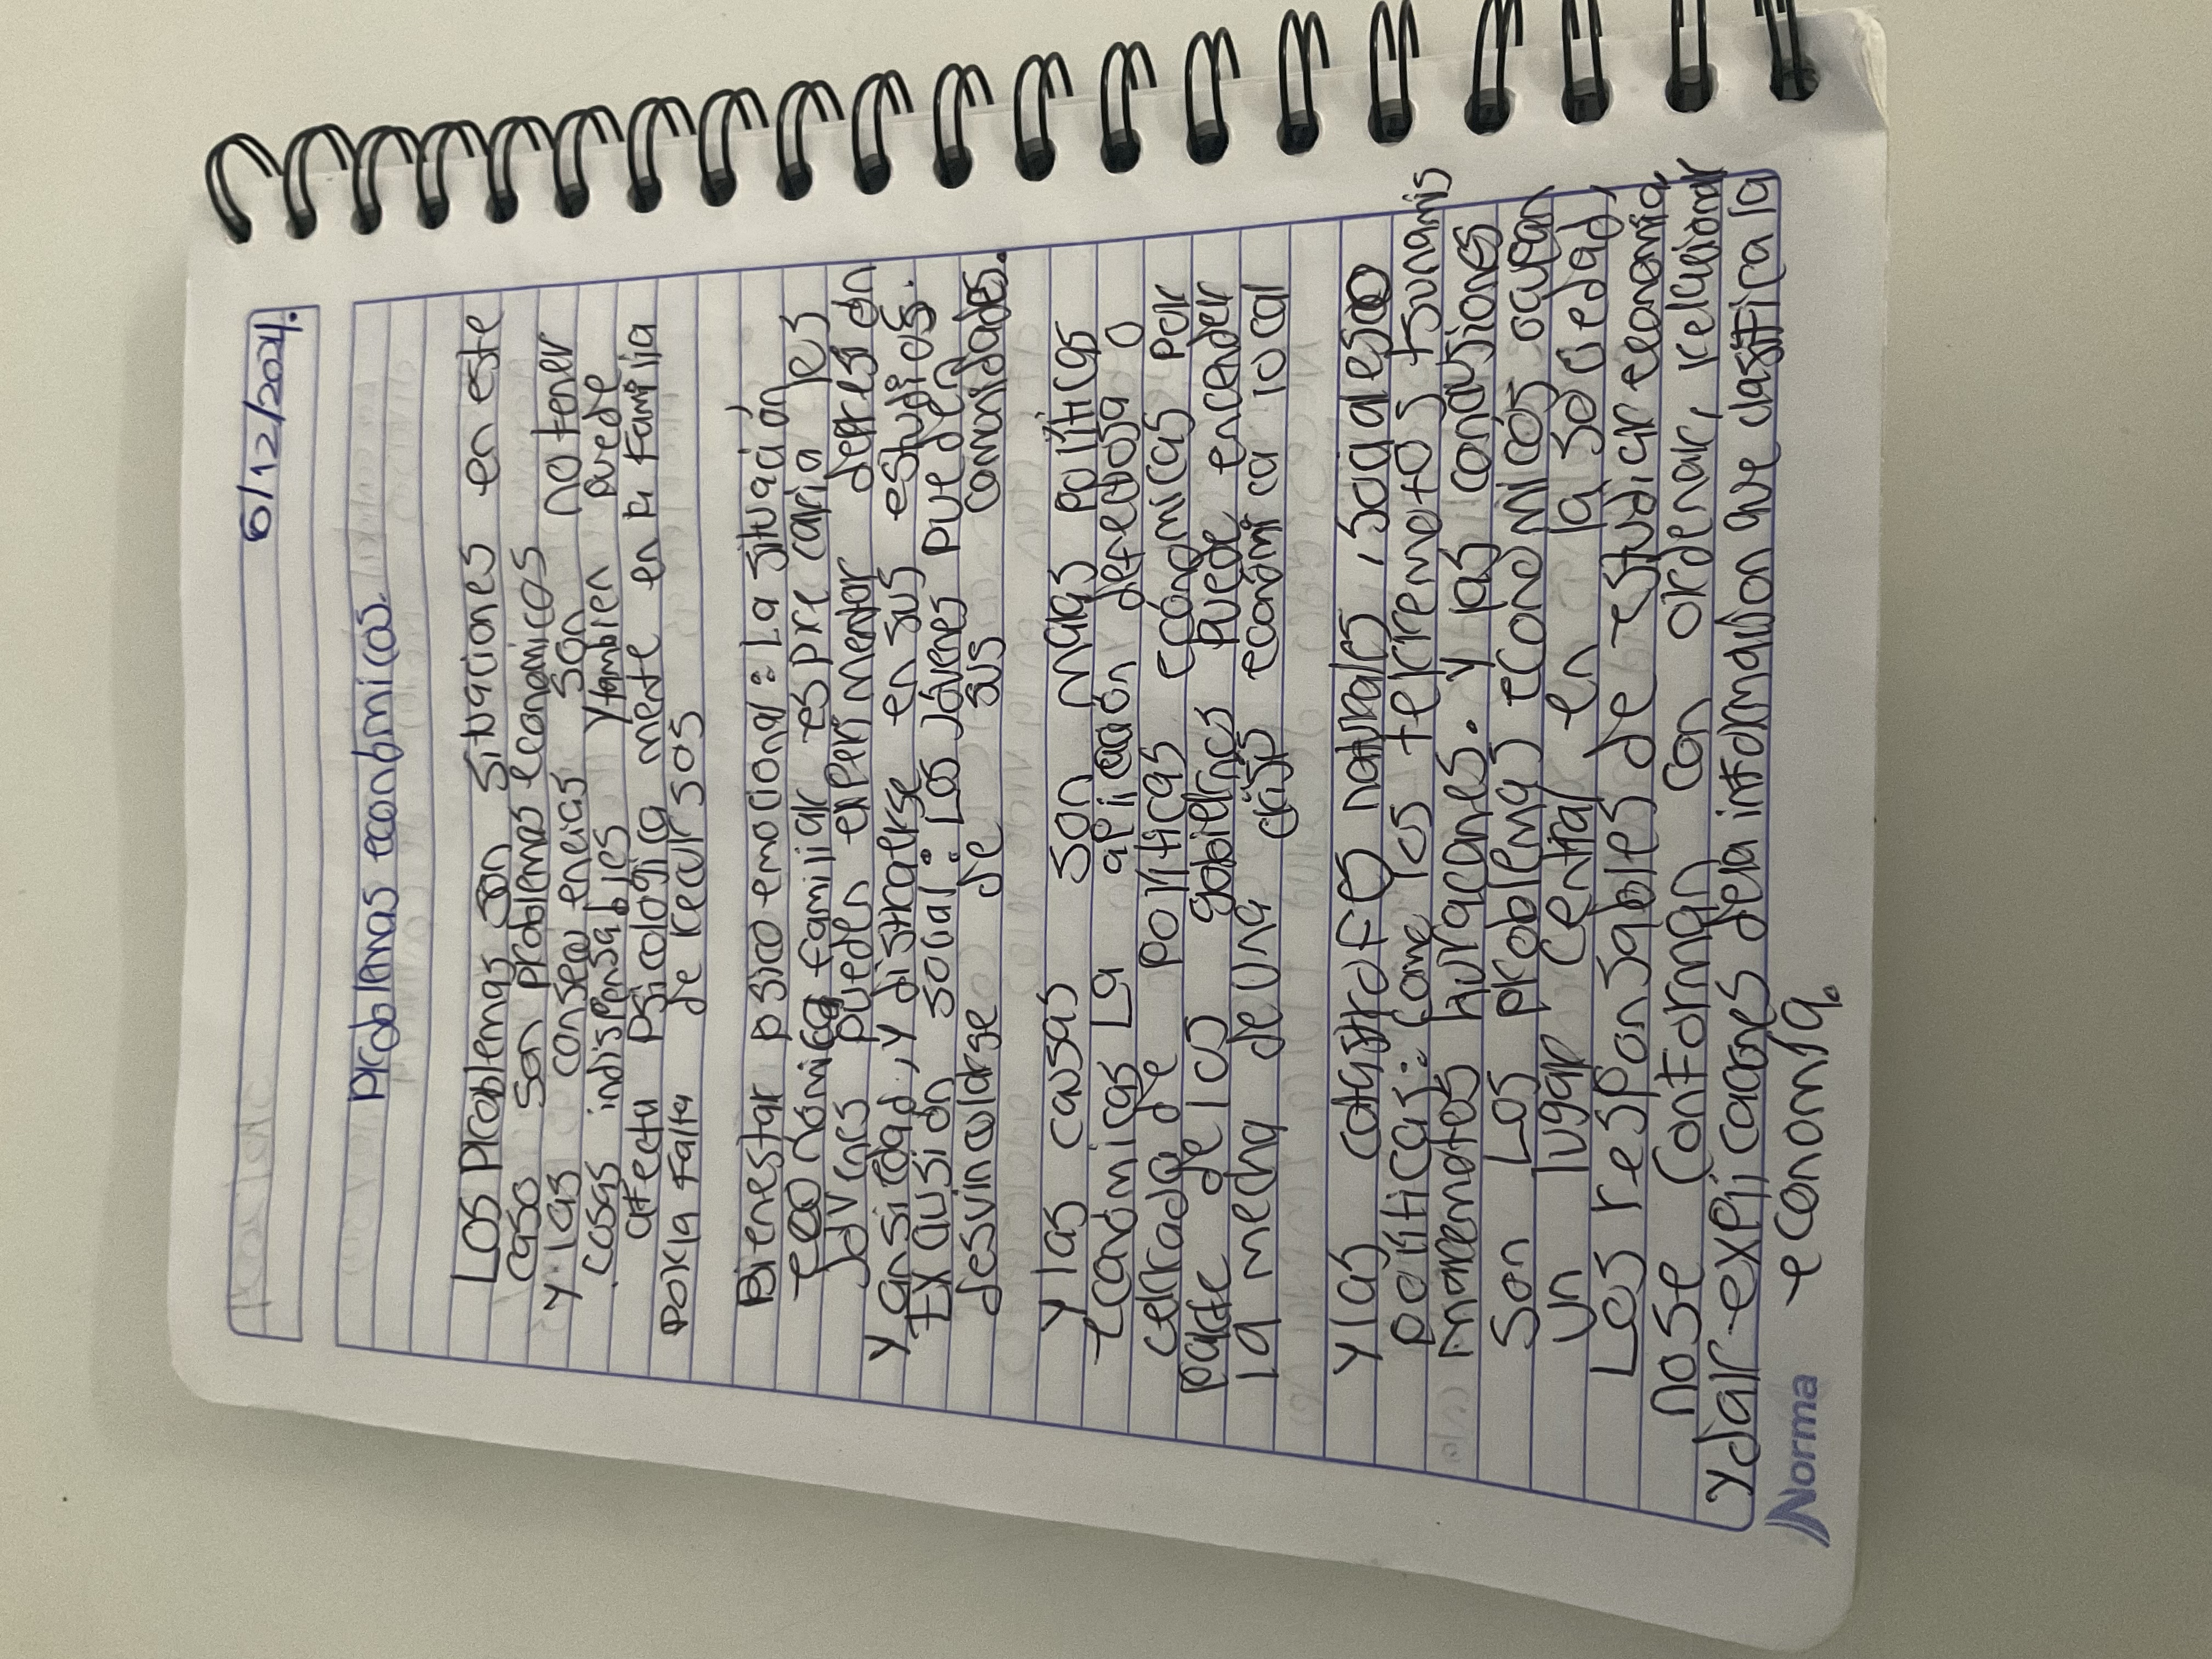 6/12/2024.
Problemas económicos.
Los Problemas son situaciones en este
caso son problemas economicos
y las consecuencias son no tener
cosas indispensables y tambien puede
afectar psicologica mente en tu familia
por la falta de recursos
Bienestar psico emocional: La situación
económica familiar es precaria los
jovenes pueden experimentar depresión
y ansiedad, y distraerse en sus estudios.
Exclusión social: Los jóvenes pueden
desvincularse de sus comonidades.
Y las causas son malas políticas
económicas La aplicación defectuosa o
cerrada de políticas económicas por
parte de los gobiernos puede encender
la mecha de una crisis económica local
Y las catastrofes naturales, sociales o
políticas: como los terremotos tsunamis
maremotos huracanes. y las conclusiones
son Los problemas economicos ocupan
un lugar central en la sociedad,
Los responsables de estudiar economia
no se conforman con ordenar, relacionar
y dar explicaciones de la información que clasifica la
economía.
Norma